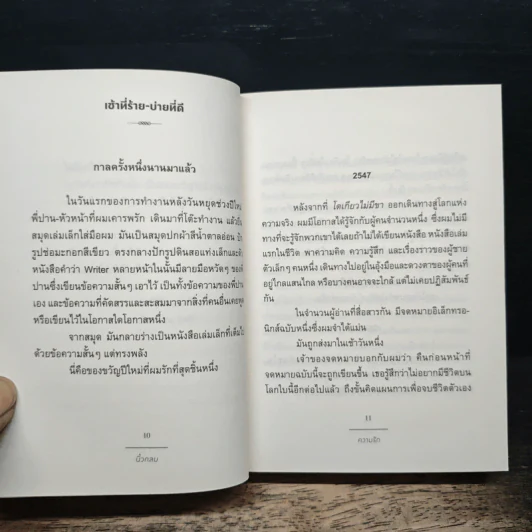 เช้าที่ร้าย-บ่ายที่ดี
กาลครั้งหนึ่งนานมาแล้ว
ในวันแรกของการทำงานหลังวันหยุดช่วงปีใหม่
พี่ปาน-หัวหน้าที่ผมเคารพรัก เดินมาที่โต๊ะทำงาน แล้วยื่น
สมุดเล่มเล็กใส่มือผม มันเป็นสมุดปกผ้าสีน้ำตาลอ่อน
รูปช่อมะกอกสีเขียว ตรงกลางปักรูปดินสอแท่งเล็กและตัว
หนังสือคำว่า Writer หลายหน้าในนั้นมีลายมือหวัดๆ ของพี่
ปานซึ่งเขียนข้อความสั้นๆ เอาไว้ เป็นทั้งข้อความของพี่ปาน
เอง และข้อความที่คัดสรรและสะสมมาจากสิ่งที่คนอื่นเคยพูด
หรือเขียนไว้ในโอกาสใดโอกาสหนึ่ง
จากสมุด มันกลายร่างเป็นหนังสือเล่มเล็กที่เต็มไป
ด้วยข้อความสั้นๆ แต่ทรงพลัง
นี่คือของขวัญปีใหม่ที่ผมรักที่สุดชิ้นหนึ่ง
10
นิ้วกลม
2547
หลังจากที่ โตเกียวไม่มีขา ออกเดินทางสู่โลกแห่ง
ความจริง ผมมีโอกาสได้รู้จักกับผู้คนจำนวนหนึ่ง ซึ่งผมไม่มี
ทางที่จะรู้จักพวกเขาได้เลยถ้าไม่ได้เขียนหนังสือ หนังสือเล่ม
แรกในชีวิต พาความคิด ความรู้สึก และเรื่องราวของผู้ชาย
ตัวเล็กๆ คนหนึ่ง เดินทางไปอยู่ในอุ้งมือและดวงตาของผู้คนที่
อยู่ใกล้แสนไกล หรือบางคนอาจจะใกล้ แต่ไม่เคยปฏิสัมพันธ์
กัน
ในจำนวนผู้อ่านที่สื่อสารกัน มีจดหมายอิเล็กทรอ-
นิกส์ฉบับหนึ่งซึ่งผมจำได้แม่น
มันถูกส่งมาในเช้าวันหนึ่ง
เจ้าของจดหมายบอกกับผมว่า คืนก่อนหน้าที่
จดหมายฉบับนี้จะถูกเขียนขึ้น เธอรู้สึกว่าไม่อยากมีชีวิตบน
โลกใบนี้อีกต่อไปแล้ว ถึงขั้นคิดแผนการเพื่อจบชีวิตตัวเอง
11
ความรัก